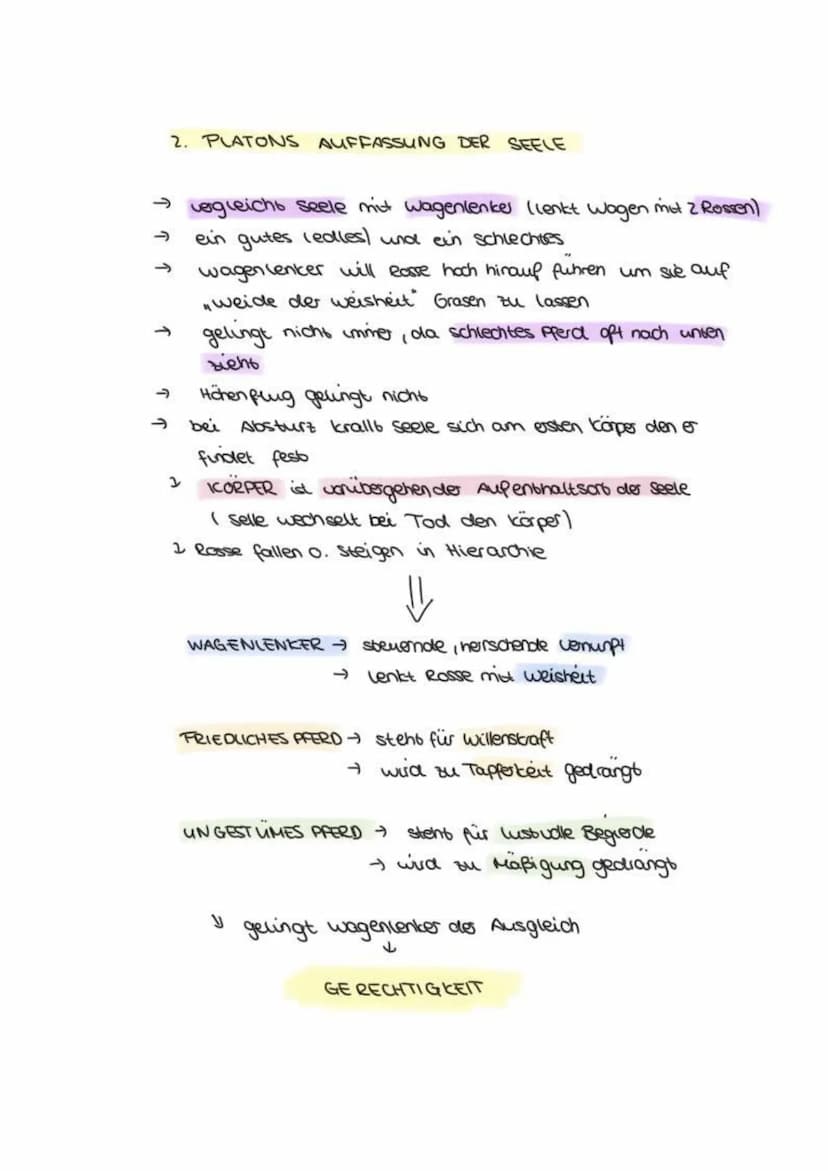 2. PLATONS AUFFASSUNG DER SEELE
→ vergleicht Seele mit Wagenlenker (lenkt Wagen mit 2 Rossen)
→ ein gutes (edles) und ein schlechtes
→ wagenlenker will Rosse hoch hinauf führen um sie auf
„weide der weisheit" Grasen zu lassen
→ gelingt nicht immer, da schlechtes Pferd oft nach unten
zieht
→ Höhenflug gelingt nicht
→ bei Absturz krallt Seele sich am ersten Körper den er
findet fest
KÖRPER ist vorübergehender Aufenthaltsort der Seele
(Selle wechselt bei Tod den Körper)
Rosse fallen o. steigen in Hierarchie
⇓
WAGENLENKER → steuernde, herrschende Vernunft
→ lenkt Rosse mit Weisheit
FRIEDLICHES PFERD → steht für Willenskraft
→ wird zu Tapferkeit gedrängt
UNGESTÜMES PFERD → steht für lustvolle Begierde
→ wird zu Mäßigung gedrängt
↓ gelingt wagenlenker der Ausgleich
↓
GERECHTIGKEIT